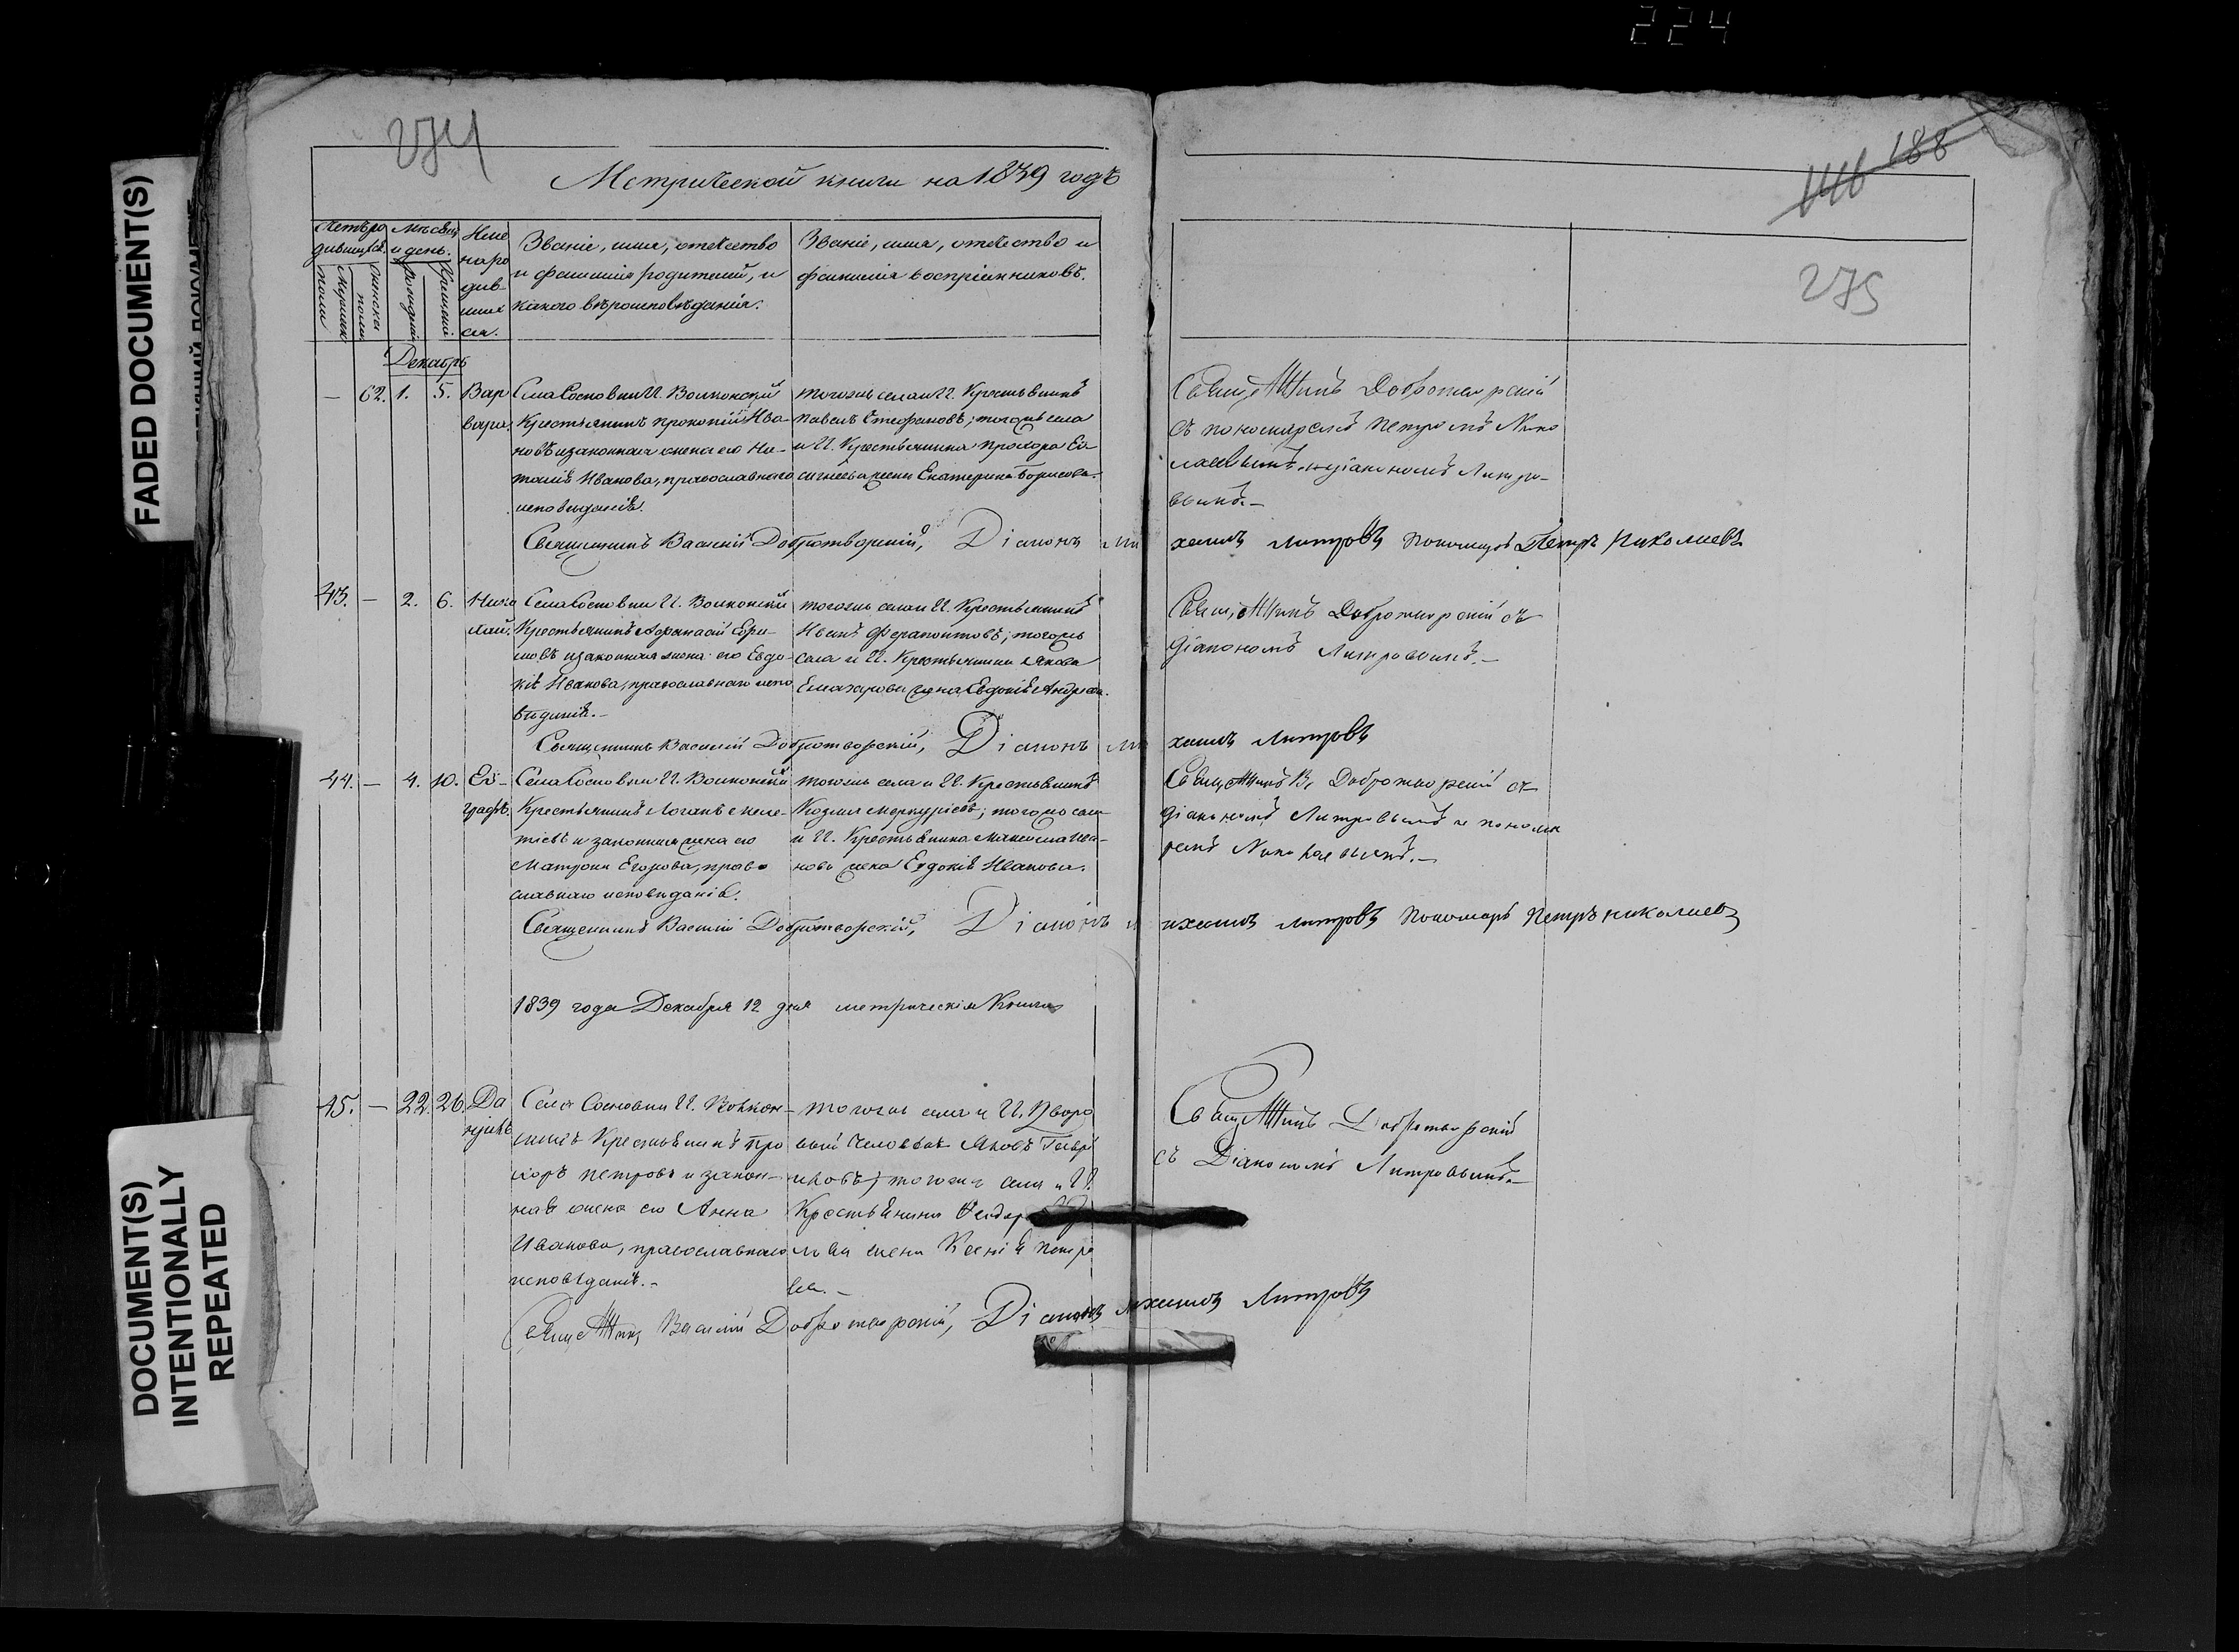 224
FADED DOCUMENT(S)
DOCUMENT(S)
INTENTIONALLY
REPEATED
274
188
275
Метрической книги на 1839 годъ
Счетъ ро
дившихся.
Мужеска
пола
Женска
полу
Мѣсяцъ
и день.
Рожденія
Крещенія.
Име
на ро
див-
ших
ся.
Званіе, имя, отечество
и фамилія родителей, и
какого вѣроисповѣданія.
Званіе, имя, отечество и
фамилія воспріемниковъ.
Декабрь
— 62. 1. 5. Вар
вара.
Села Сосновки И. Волконской
Крестьянинъ Прокопій Ива-
новъ и законная жена его На-
талія Иванова, православнаго
исповѣданія.
тогожъ села и И. Крестьянинъ
Павелъ Стефановъ; тогожъ села
и И. Крестьянина Прохора Ев
жена Екатерина Борисова.
Священникъ Доброт
съ пономаремъ Петромъ Нико
лаевымъ и діакономъ Литро-
вымъ.—
Священникъ Василій Добротворскій, Діаконъ Михаилъ Литровъ Пономарь Петръ Николаевъ
43. — 2. 6. Нико
лай.
Села Сосновки И. Волконской
Крестьянинъ Афанасій Ефи-
мовъ и законная жена его Евдо-
кія Иванова, православнаго испо
вѣданія.—
тогожъ села и И. Крестьянинъ
Иванъ Ферапонтовъ; тогожъ
села и И. Крестьянина Якова
жена Евдокія Андреева.
Священникъ Добротворскій съ
діакономъ Литровымъ.—
Священникъ Василій Добротворскій, Діаконъ Михаилъ Литровъ
44. — 4. 10. Ев-
графъ.
Села Сосновки И. Волконской
Крестьянинъ Логинъ Меле-
тіевъ и законная жена его
Матрона Егорова, право
славнаго исповѣданія.
тогожъ села и И. Крестьянинъ
Козма Меркуріевъ; тогожъ села
и И. Крестьянина Максима Ива-
нова жена Евдокія Иванова.
Священникъ В. Добротворскій съ
діакономъ Литровымъ и понома
ремъ Николаевымъ.—
Священникъ Василій Добротворскій, Діаконъ Михаилъ Литровъ Пономарь Петръ Николаевъ
1839 года Декабря 12 дня метрическія Книги
45. — 22. 26. Да
ніилъ
Села Сосновки И. Волкон-
ской Крестьянинъ Про
хоръ Петровъ и закон-
ная жена его Анна
Иванова, православнаго
исповѣданія.—
тогожъ села и И. Дворо
вый человѣкъ Яковъ Гаври
ловъ; тогожъ села и И.
Крестьянина Феодора
жена Ксенія Петро
ва.—
Священникъ Добротворскій
съ Діакономъ Литровымъ.—
Священникъ Василій Добротворскій, Діаконъ Михаилъ Литровъ